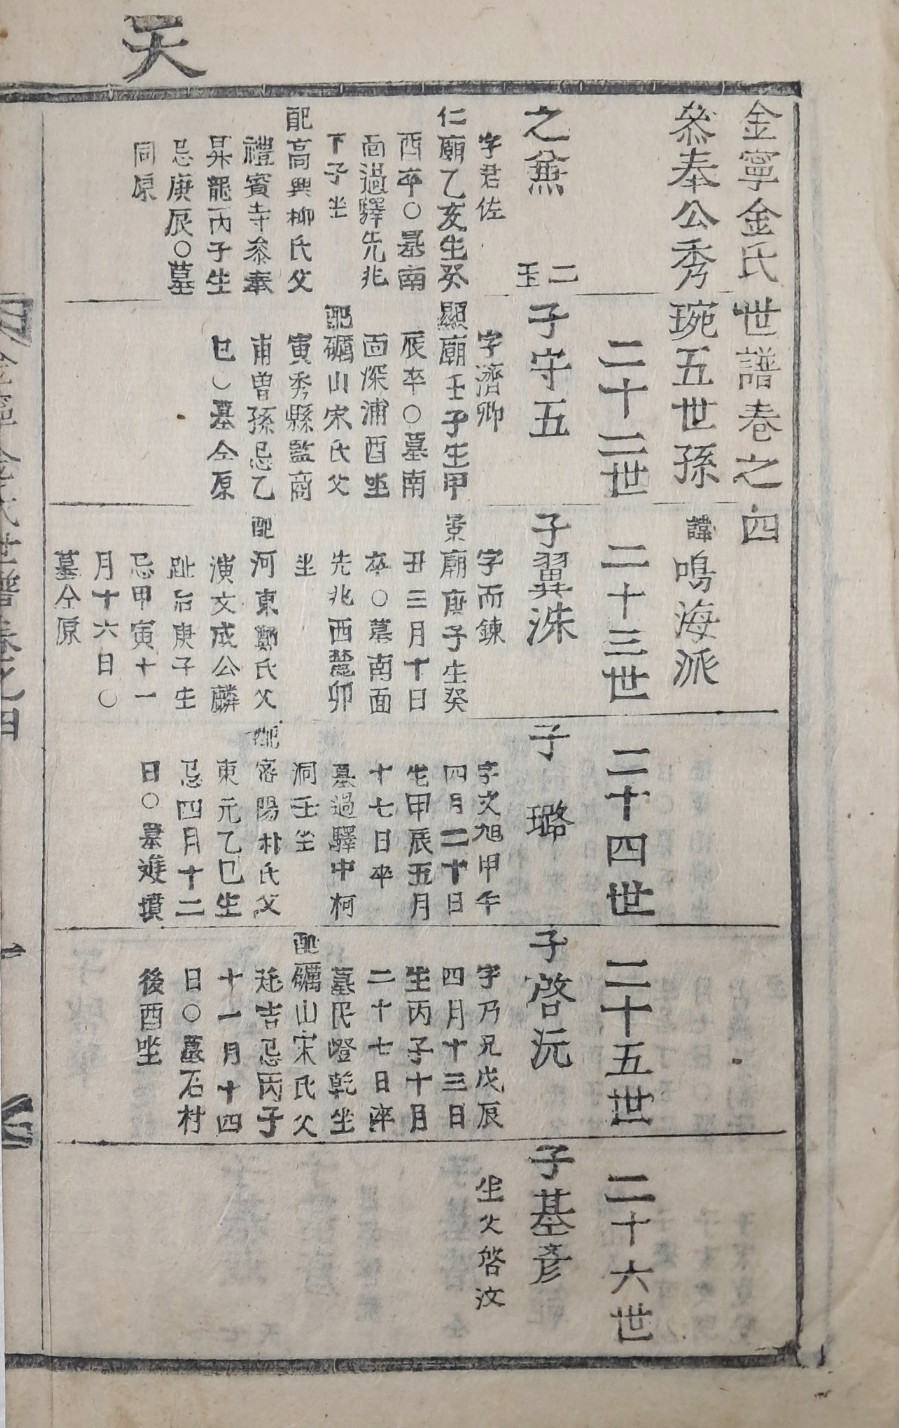 天
金寧金氏世譜卷之四
叅奉公秀琬五世孫諱鳴海派
二十二世
二十三世
二十四世
二十五世
二十六世
之
二玉
字君佐
仁廟乙亥生癸
酉卒○墓南
面過驛先兆
下子坐
配高興柳氏父
禮賓寺叅奉
龍丙子生
忌庚辰○墓
同原
子守五
字濟卿
顯廟壬子生甲
辰卒○墓南
面深浦酉坐
配礪山宋氏父
寅秀縣監商
甫曾孫忌乙
巳○墓仝原
子翼洙
字而鍊
景廟庚子生癸
丑三月十日
卒○墓南面
先兆西麓卯
坐
配河東鄭氏父
演文成公麟
趾后庚子生
忌甲寅十一
月十六日○
墓仝原
子璐
字文旭甲午
四月二十日
生甲辰五月
十七日卒
墓過驛中柯
洞壬坐
配密陽朴氏父
東元乙巳生
忌四月十二
日○墓雙墳
子啓沅
字乃兄戊辰
四月十三日
生丙子十月
二十七日卒
墓民嶝乾坐
配礪山宋氏父
廷吉忌丙子
十一月十四
日○墓石村
後酉坐
子基彥
生父啓汶
金寧金氏世譜卷之四